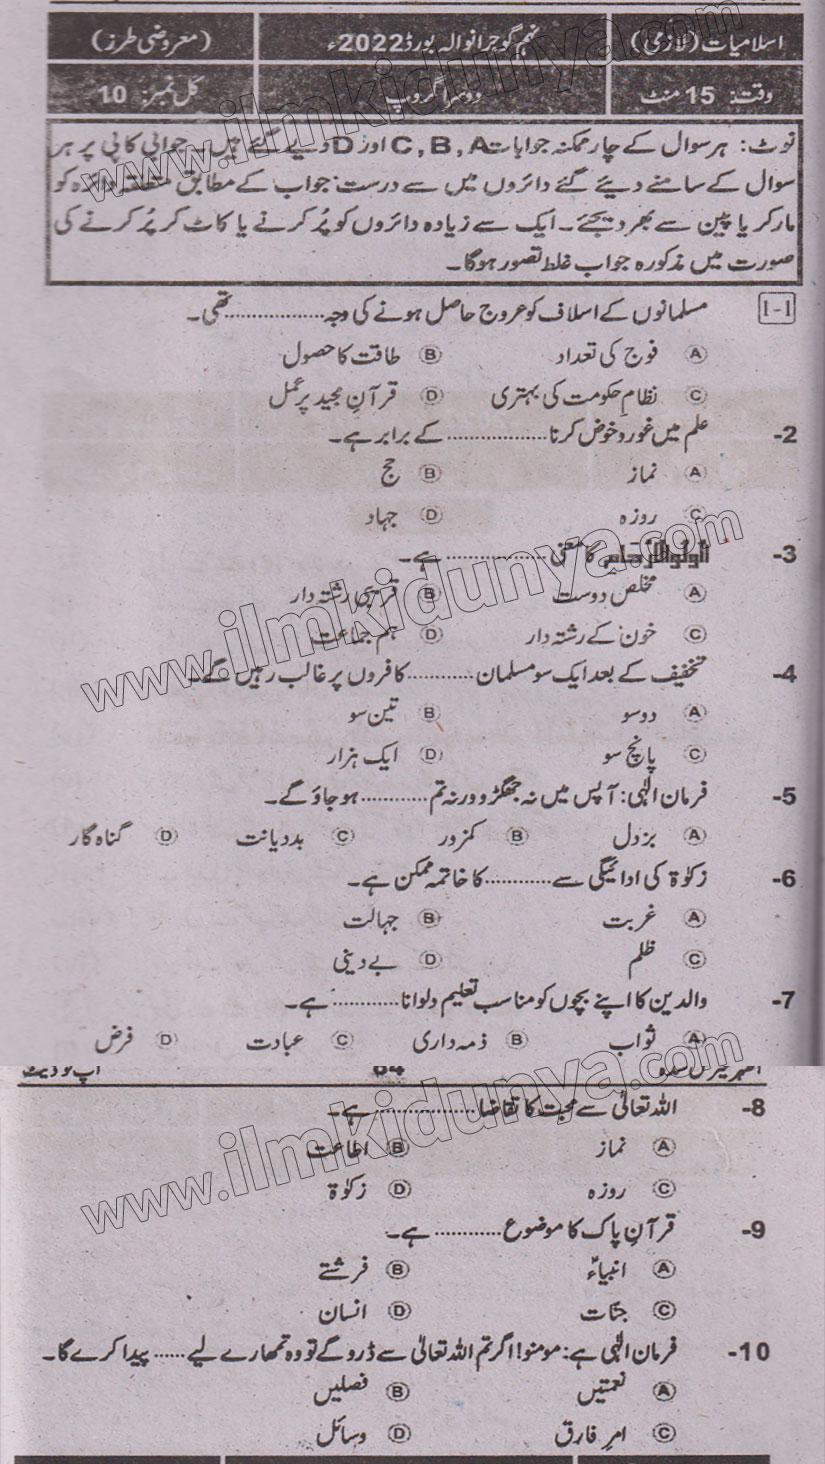 اسلامیات (لازمی) نہم گوجرانوالہ بورڈ 2022ء (معروضی طرز)
وقت: 15 منٹ دوسرا گروپ کل نمبر: 10
نوٹ: ہر سوال کے چار ممکنہ جوابات C, B, A اور D دیے گئے ہیں۔ جوابی کاپی پر ہر
سوال کے سامنے دیئے گئے دائروں میں سے درست جواب کے مطابق متعلقہ دائرہ کو
مارکر یا پین سے بھر دیجئے۔ ایک سے زیادہ دائروں کو پُر کرنے یا کاٹ کر پُر کرنے کی
صورت میں مذکورہ جواب غلط تصور ہوگا۔
1-1 مسلمانوں کے اسلاف کو عروج حاصل ہونے کی وجہ .................. تھی۔
A فوج کی تعداد B طاقت کا حصول
C نظامِ حکومت کی بہتری D قرآنِ مجید پر عمل
2- علم میں غور و خوض کرنا .................. کے برابر ہے۔
A نماز B حج
C روزہ D جہاد
3- اُولُوا الْاَرْحَامِ کا معنی .................. ہے۔
A مخلص دوست B قریبی رشتہ دار
C خون کے رشتہ دار D ہم جماعت
4- تخفیف کے بعد ایک سو مسلمان ............ کافروں پر غالب رہیں گے۔
A دو سو B تین سو
C پانچ سو D ایک ہزار
5- فرمانِ الٰہی: آپس میں نہ جھگڑو ورنہ تم ............ ہو جاؤ گے۔
A بزدل B کمزور C بددیانت D گناہ گار
6- زکوٰۃ کی ادائیگی سے ............ کا خاتمہ ممکن ہے۔
A غربت B جہالت
C ظلم D بے دینی
7- والدین کا اپنے بچوں کو مناسب تعلیم دلوانا ............ ہے۔
A ثواب B ذمہ داری C عبادت D فرض
64 اپ ٹو ڈیٹ
8- اللہ تعالیٰ سے محبت کا تقاضا .................. ہے۔
A نماز B اطاعت
C روزہ D زکوٰۃ
9- قرآنِ پاک کا موضوع ............ ہے۔
A انبیاءؑ B فرشتے
C جنّات D انسان
10- فرمانِ الٰہی ہے: مومنو! اگر تم اللہ تعالیٰ سے ڈرو گے تو وہ تمھارے لیے ...... پیدا کرے گا۔
A نعمتیں B فصلیں
C امرِ فارق D وسائل
www.ilmkidunya.com
www.ilmkidunya.com
www.ilmkidunya.com